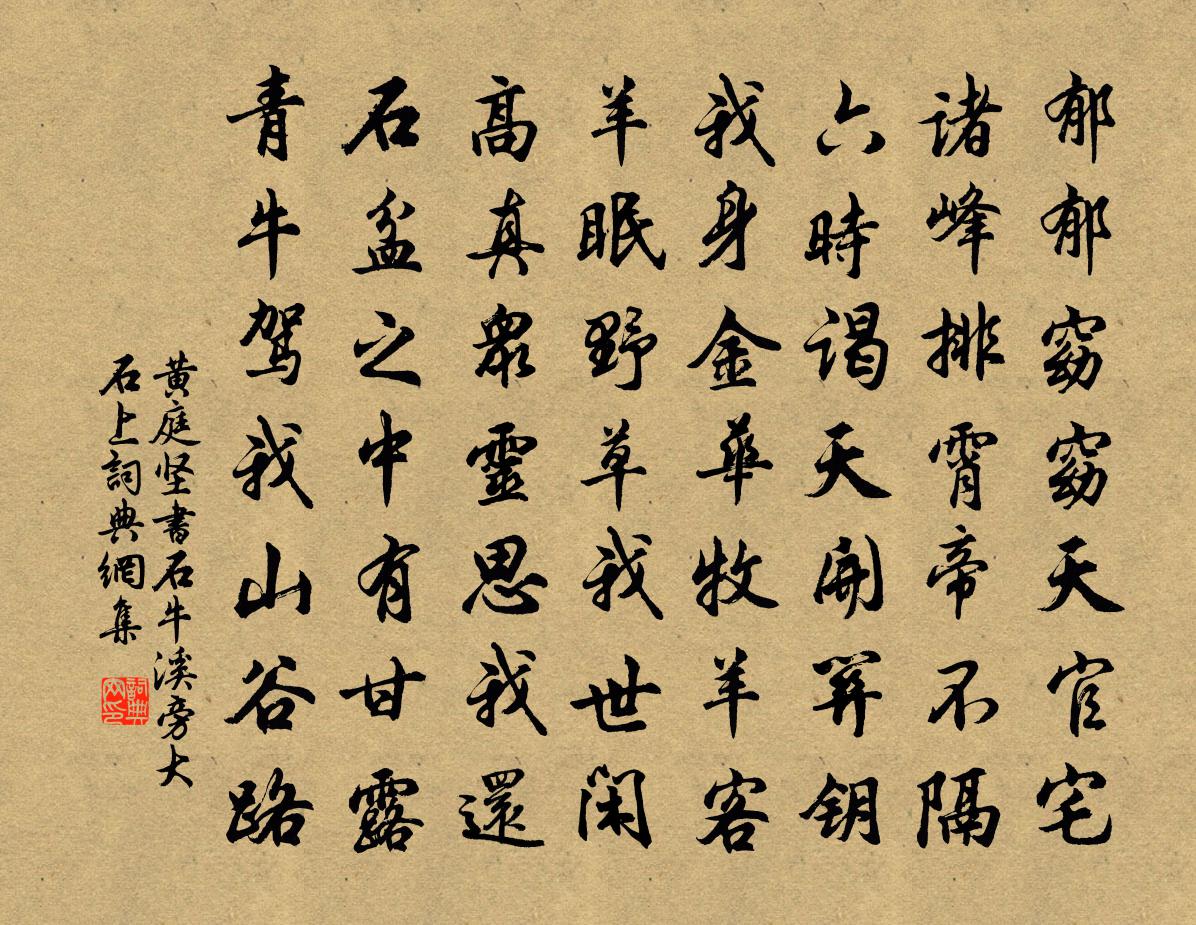 郁郁窈窈天官宅
诸峰排霄帝不隔
六時谒天開關钥
我身金華牧羊客
羊眠野草我世闲
高真眾靈思我還
石盆之中有甘露
青牛驾我山谷路
黄庭坚書石牛溪旁大
石上詞典網集
詞典
网印